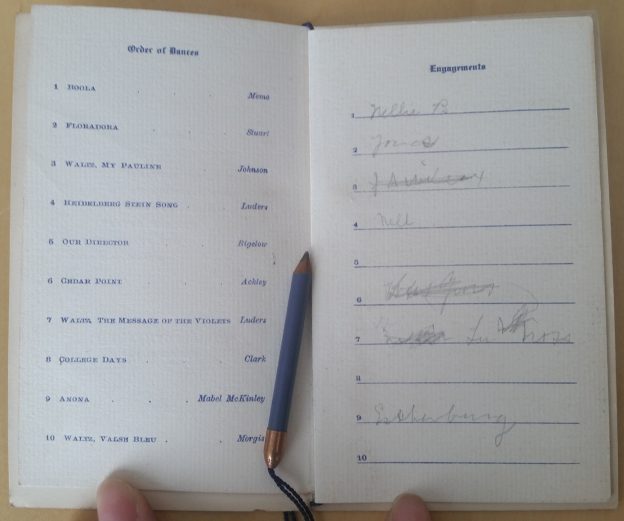 Order of Dances
1 BOOLA . . . Mema
2 FLORADORA . . Stuart
3 WALTZ, MY PAULINE . Johnson
4 HEIDELBERG STEIN SONG . Luders
5 OUR DIRECTOR . . Bigelow
6 CEDAR POINT . . Ackley
7 WALTZ, THE MESSAGE OF THE VIOLETS Luders
8 COLLEGE DAYS . . . Clark
9 ANONA . . . Mabel McKinley
10 WALTZ, VALSE BLEU . Morgis
Engagements
1 Nellie P.
2
3
4 Nell
5
6
7
8
9
10